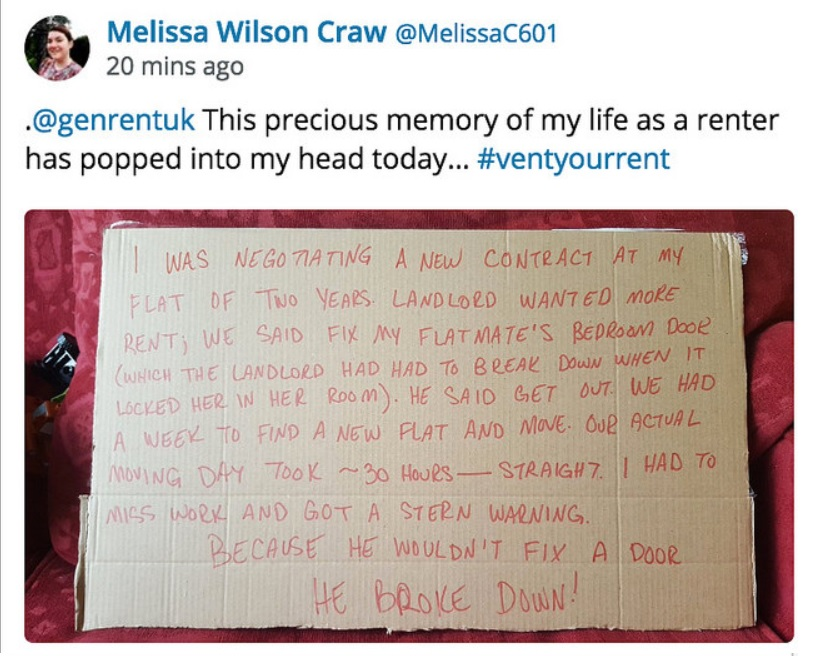 Melissa Wilson Craw @MelissaC601
20 mins ago
.@genrentuk This precious memory of my life as a renter
has popped into my head today... #ventyourrent
I WAS NEGOTIATING A NEW CONTRACT AT MY
FLAT OF TWO YEARS. LANDLORD WANTED MORE
RENT; WE SAID FIX MY FLATMATE'S BEDROOM DOOR
(WHICH THE LANDLORD HAD HAD TO BREAK DOWN WHEN IT
LOCKED HER IN HER ROOM). HE SAID GET OUT. WE HAD
A WEEK TO FIND A NEW FLAT AND MOVE. OUR ACTUAL
MOVING DAY TOOK ~30 HOURS — STRAIGHT. I HAD TO
MISS WORK AND GOT A STERN WARNING.
BECAUSE HE WOULDN'T FIX A DOOR
HE BROKE DOWN!